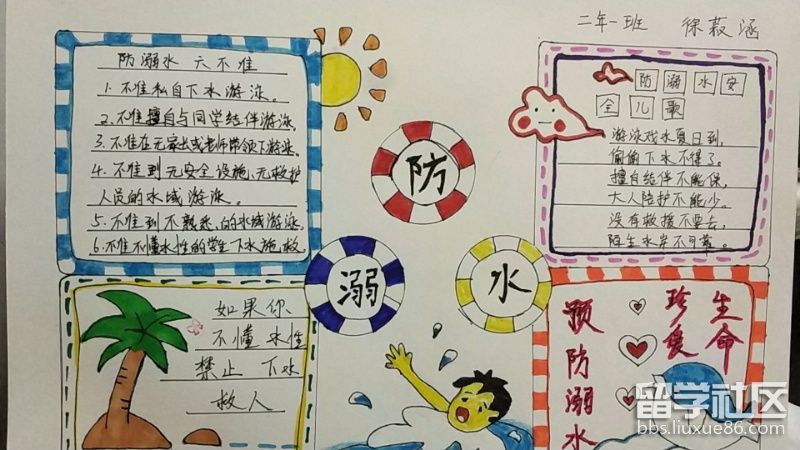 二年一班 徐菽涵
防溺水 六不准
1.不准私自下水游泳。
2.不准擅自与同学结伴游泳。
3.不准在无家长或老师带领下游泳。
4.不准到无安全设施、无救护
人员的水域游泳。
5.不准到不熟悉的水域游泳
6.不准不懂水性的学生下水施救
防
溺
水
防溺水安
全儿歌
游泳戏水夏日到,
偷偷下水不得了。
擅自结伴不能保,
大人陪护不能少。
没有救援不要去,
陌生水岸不可靠。
如果你
不懂水性
禁止下水
救人
珍爱生命
预防溺水
留学社区
bbs.liuxue86.com